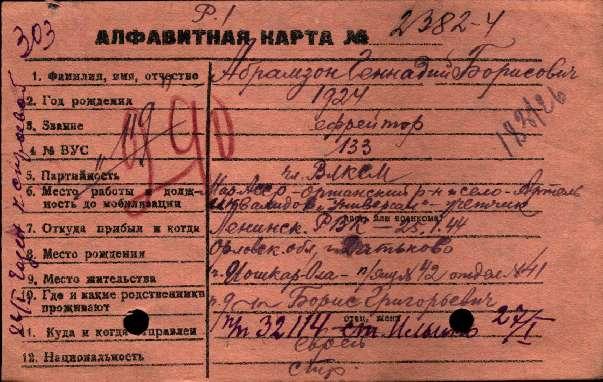 Р.1
303
АЛФАВИТНАЯ КАРТА № 2382-4
1. Фамилия, имя, отчество Абрамзон Геннадий Борисович
2. Год рождения 1924
3. Звание ефрейтор
4 № ВУС 133
5. Партийность чл. ВЛКСМ
6. Место работы и должность до мобилизации Мар Асср - р-н село - Артель
инвалидов "Универсам" - учетчик
7. Откуда прибыл и когда Ленинск. РВК - 25.1.44
8. Место рождения Орловск. обл. г. Дятьково
9. Место жительства г. Йошкар Ола - п/ящ № 42 отдел № 41
10. Где и какие родственники проживают Борис Григорьевич
отец, жена
11. Куда и когда отправлен п/п 32114 ст. 27/I
12. Национальность еврей
290
183/26
годен к строевой